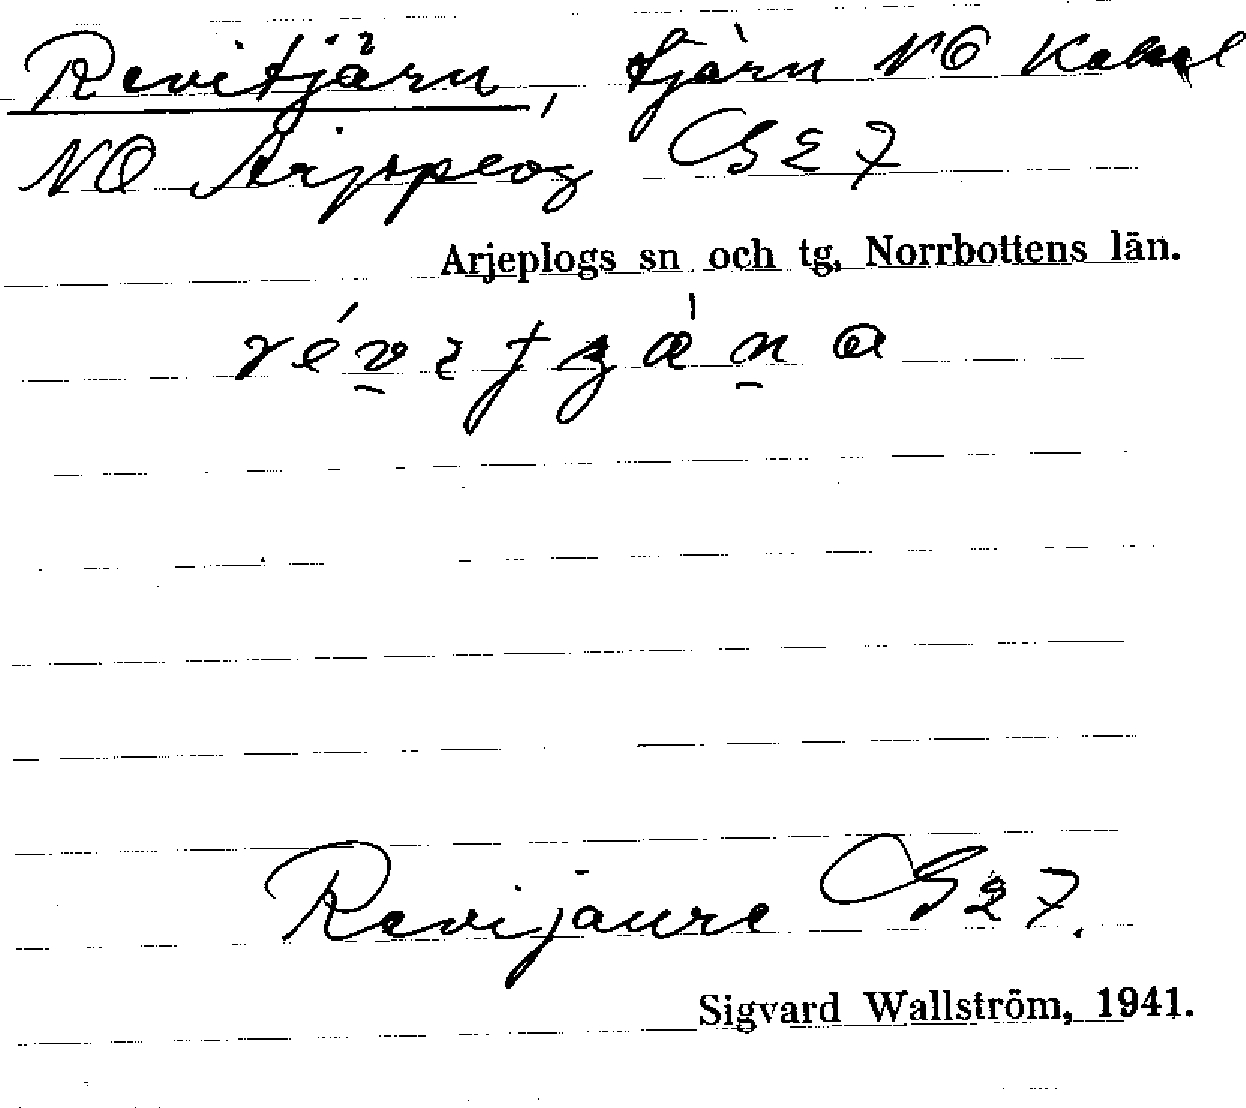 Revitjärn, tjärn NO Kakel
NO Arjeplog GS 27
Arjeplogs sn och tg, Norrbottens län.
Revijaure GS 27.
Sigvard Wallström, 1941.